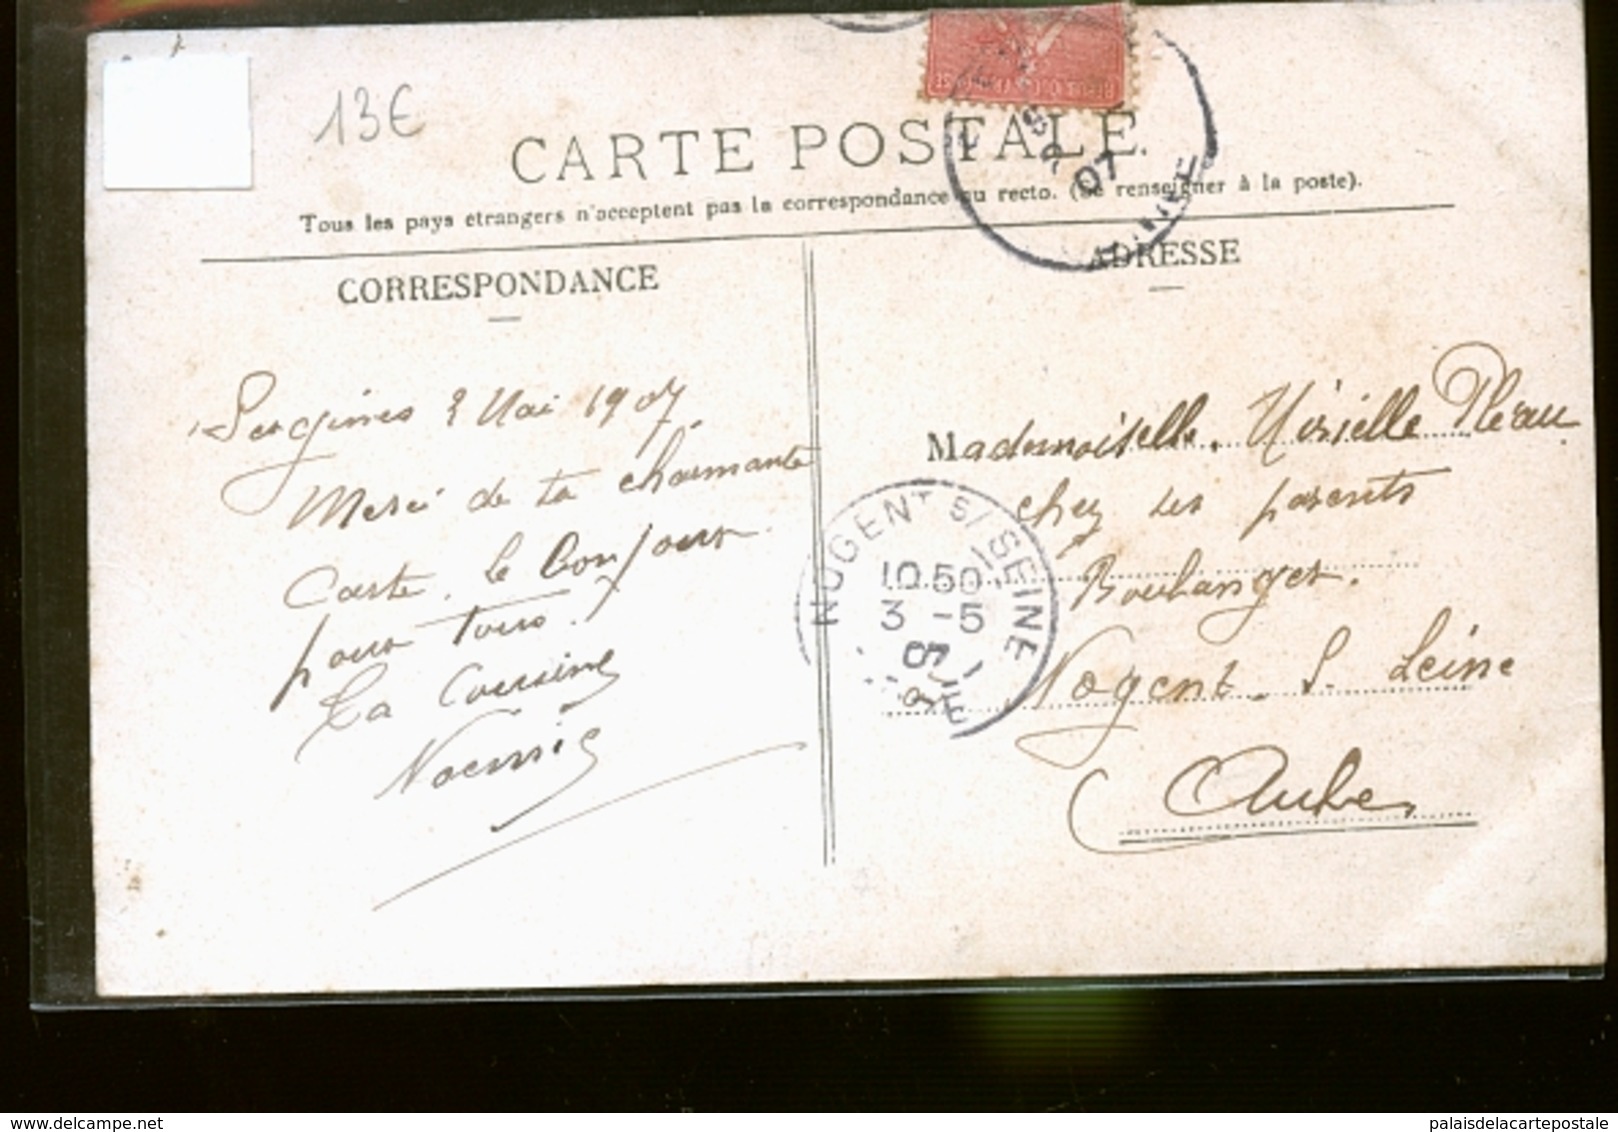 13€
CARTE POSTALE.
Tous les pays étrangers n'acceptent pas la correspondance au recto. (Se renseigner à la poste).
CORRESPONDANCE
ADRESSE
07
Sergines 2 Mai 1907
Merci de ta charmante
Carte. le bonjour
pour Tous.
Ta Cousine
Noemie
NOGENT S/SEINE
10 50
3 -5
07
Mademoiselle. Mirielle Pleau
chez ses parents
Boulanger.
Nogent. S. Seine
Aube
palaisdelacartepostale